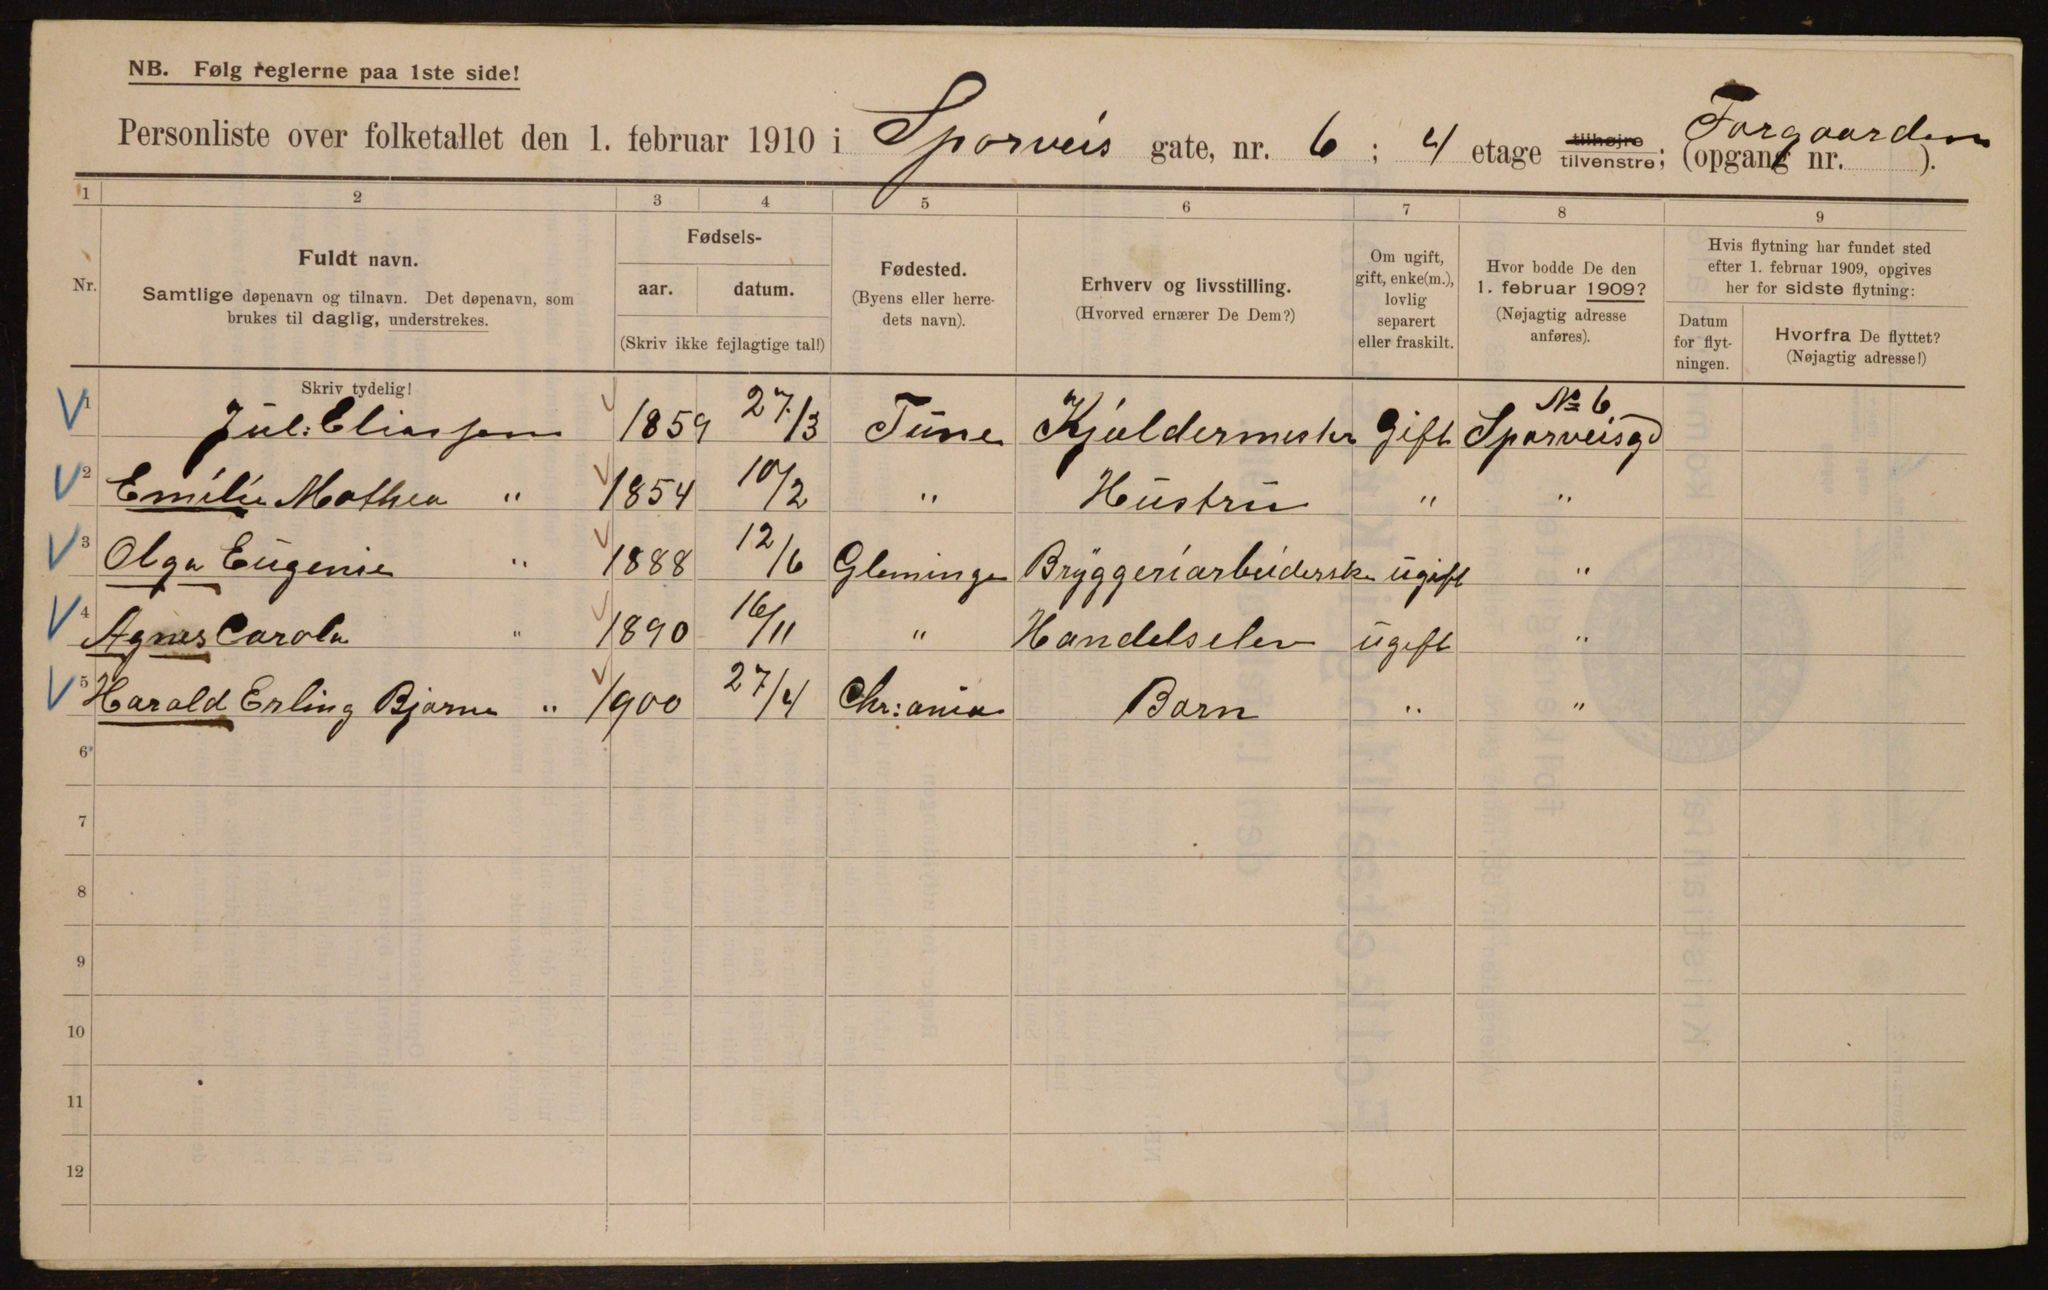 NB. Følg reglerne paa 1ste side!
Personliste over folketallet den 1. februar 1910 i Sporveis gate, nr. 6 ; 4 etage tilhøjre tilvenstre; (opgang nr. Forgaarden ).
1 2 3 4 5 6 7 8 9
Nr.
Fuldt navn.
Samtlige døpenavn og tilnavn. Det døpenavn, som
brukes til daglig, understrekes.
Skriv tydelig!
Fødsels-
aar. datum.
(Skriv ikke fejlagtige tal!)
Fødested.
(Byens eller herre-
dets navn).
Erhverv og livsstilling.
(Hvorved ernærer De Dem?)
Om ugift,
gift, enke(m.),
lovlig
separert
eller fraskilt.
Hvor bodde De den
1. februar 1909?
(Nøjagtig adresse
anføres).
Hvis flytning har fundet sted
efter 1. februar 1909, opgives
her for sidste flytning:
Datum
for flyt-
ningen.
Hvorfra De flyttet?
(Nøjagtig adresse!)
1 Jul: Eliassen 1859 27/3 Tune Kjeldermester Gift No 6 Sporveisgd
2 Emilie Mathea " 1854 10/2 " Hustru " "
3 Olga Eugenie " 1888 12/6 Glemminge Bryggeriarbeiderske ugift "
4 Agnes Carola " 1890 16/11 " Handelselev ugift "
5 Harald Erling Bjarne " 1900 27/4 Chr:ania Barn " "
6
7
8
9
10
11
12